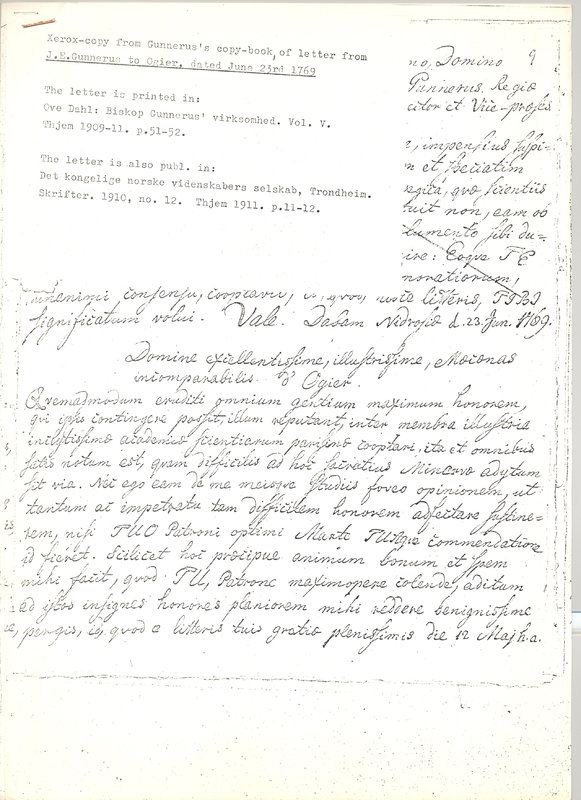 Xerox-copy from Gunnerus's copy-book, of letter from
J.E.Gunnerus to Ogier, dated June 23rd 1769
The letter is printed in:
Ove Dahl: Biskop Gunnerus' virksomhed. Vol. V.
Thjem 1909-11. p.51-52.
The letter is also publ. in:
Det kongelige norske videnskabers selskab, Trondheim.
Skrifter. 1910, no. 12. Thjem 1911. p.11-12.
9
no, Domino
Gunnerus. Regiæ
citor et Vice-præses
, impensius suspi-
n et speciatim
regita, quæ scientiis
tuit non, eam ob
lumento sibi du-
ire: Eoque TE
noratiorum,
unanimi consensu, cooptavi, quod iste litteris, TIBI
significatum volui. Vale. Dabam Nidrosiæ d. 23. Jun. 1769.
Domine excellentissime, illustrissime, Mæcenas
incomparabilis d'Ogier.
Qvemadmodum eruditi omnium gentium maximum honorem,
qvi ipsis contingere possit, illum reputant, inter membra illustria
inclytissimæ academiæ scientiarum parisinæ cooptari, ita et omnibus
satis notum est, qvam difficilis ad hoc sacratius Minervæ adytum
sit via. Nec ego eam de me meisqve studiis foveo opinionem, ut
tantum ac impetratu tam difficilem honorem adfectare sustine-
rem, nisi TUO Patroni optimi Marte TUAqve commendatione
id fieret. Scilicet hoc præcipue animum bonum et spem
mihi facit, qvod TU, Patrone maximopere colende, aditum
ad istos insignes honores planiorem mihi reddere benignissime
pergis, id qvod e litteris tuis gratiæ plenissimis die 12 Maj h.a.